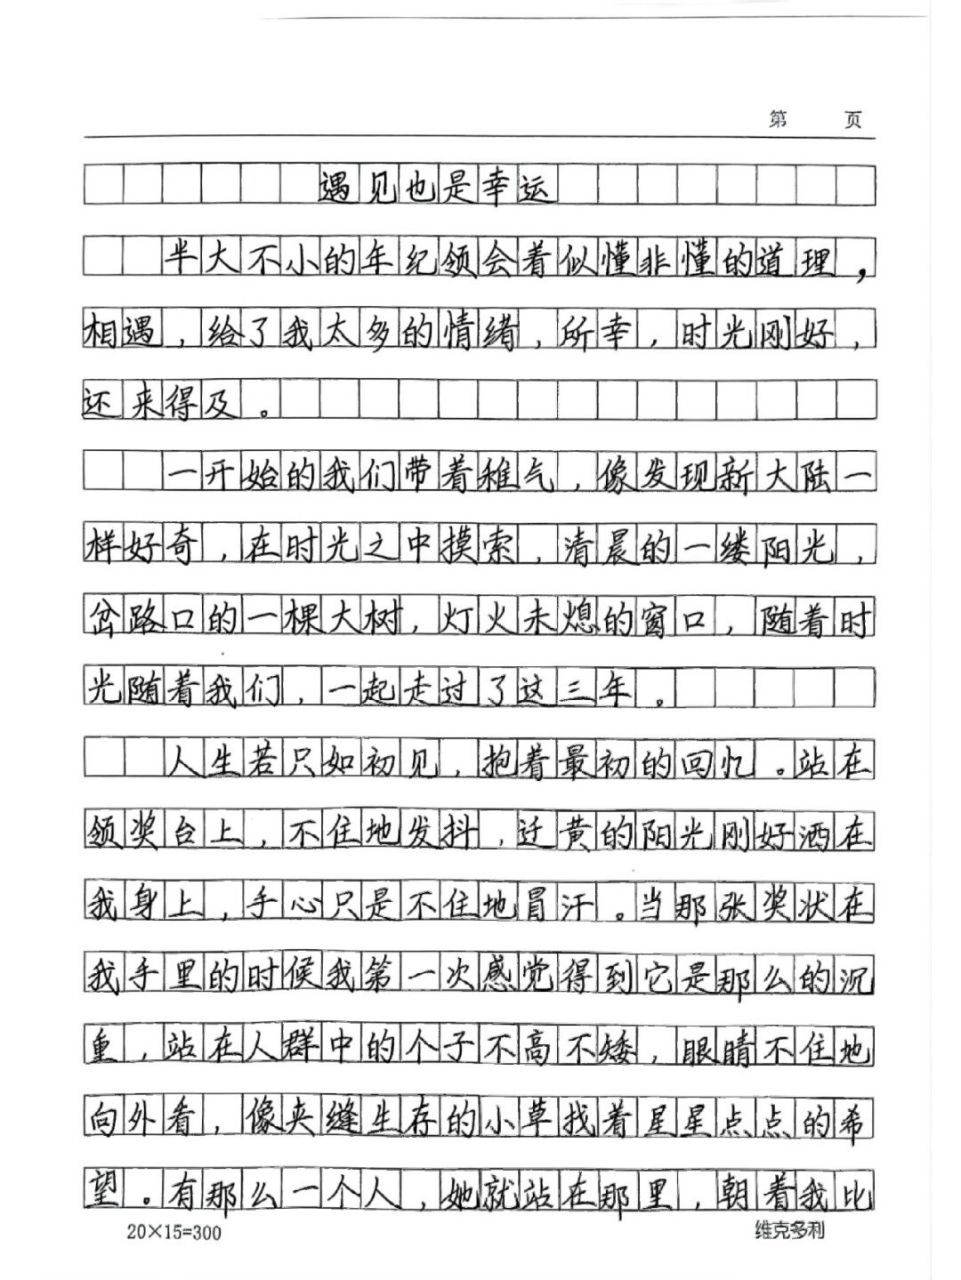 第 页
遇见也是幸运
半大不小的年纪领会着似懂非懂的道理，
相遇，给了我太多的情绪，所幸，时光刚好，
还来得及。
一开始的我们带着稚气，像发现新大陆一
样好奇，在时光之中摸索，清晨的一缕阳光，
岔路口的一棵大树，灯火未熄的窗口，随着时
光随着我们，一起走过了这三年。
人生若只如初见，抱着最初的回忆。站在
领奖台上，不住地发抖，迁黄的阳光刚好洒在
我身上，手心只是不住地冒汗。当那张奖状在
我手里的时候我第一次感觉得到它是那么的沉
重，站在人群中的个子不高不矮，眼睛不住地
向外看，像夹缝生存的小草找着星星点点的希
望。有那么一个人，她就站在那里，朝着我比
20×15=300 维克多利